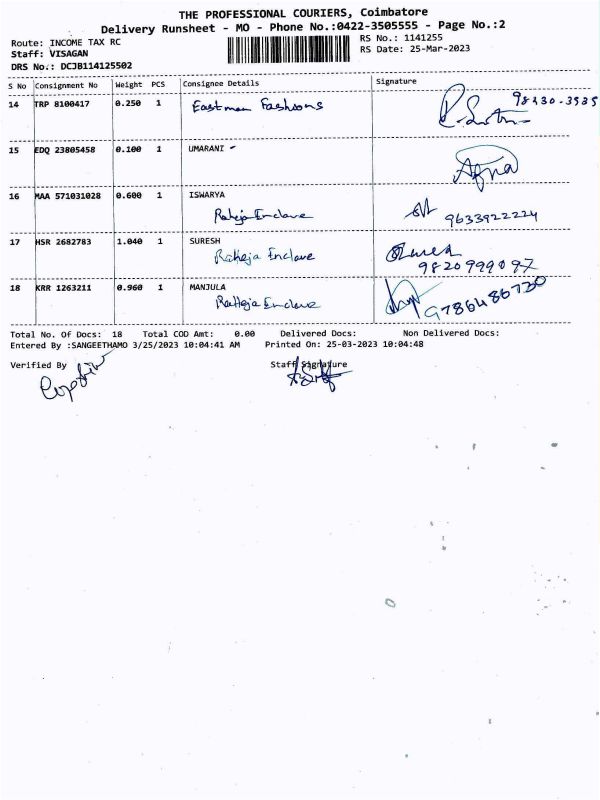 THE PROFESSIONAL COURIERS, Coimbatore
Delivery Runsheet - MO - Phone No.:0422-3505555 - Page No.:2
Route: INCOME TAX RC
RS No.: 1141255
Staff: VISAGAN
RS Date: 25-Mar-2023
DRS No.: DCJB114125502
S No Consignment No Weight PCS Consignee Details Signature
14 TRP 8100417 0.250 1 Eastman Fashions
15 EDQ 23805458 0.100 1 UMARANI -
16 MAA 571031028 0.600 1 ISWARYA
Raheja Enclave 9633922224
17 HSR 2682783 1.040 1 SURESH
Raheja Enclave 9820999097
18 KRR 1263211 0.960 1 MANJULA
Raheja Enclave 9786486730
Total No. Of Docs: 18 Total COD Amt: 0.00 Delivered Docs: Non Delivered Docs:
Entered By :SANGEETHAMO 3/25/2023 10:04:41 AM Printed On: 25-03-2023 10:04:48
Verified By Staff Signature